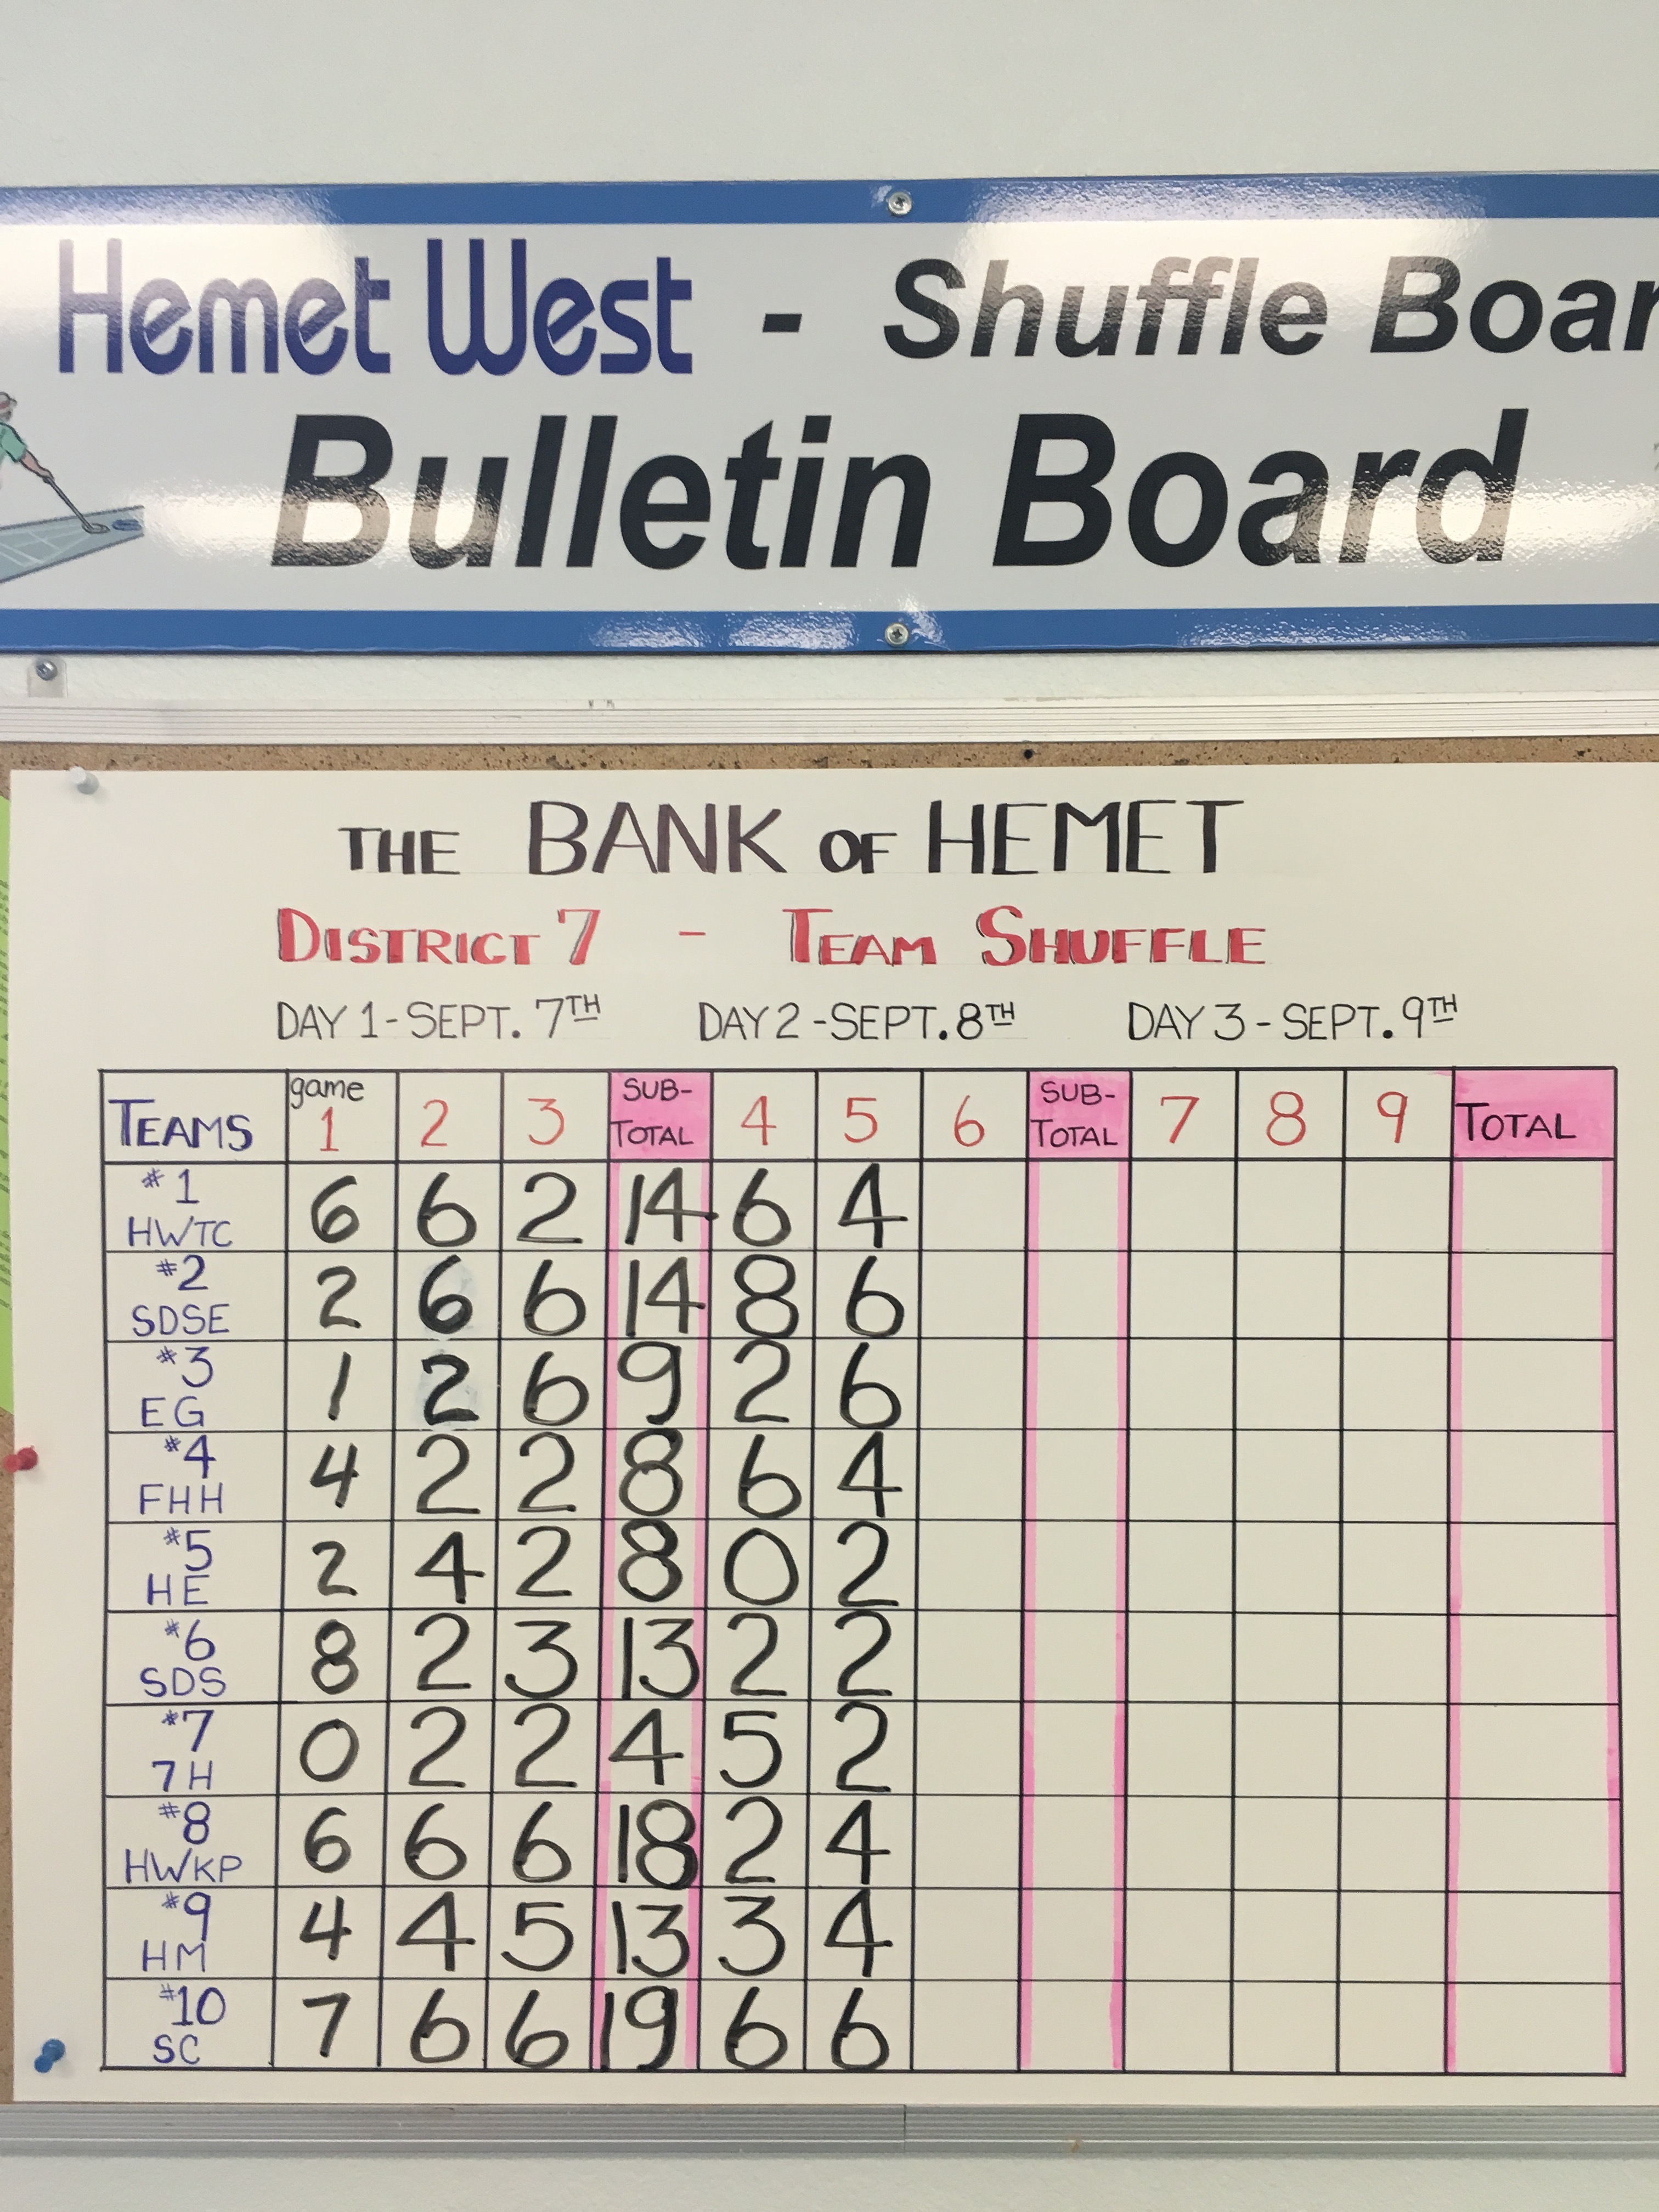 Hemet West - Shuffle Boar
Bulletin Board
THE BANK OF HEMET
DISTRICT 7 - TEAM SHUFFLE
DAY 1 - SEPT. 7TH DAY 2 - SEPT. 8TH DAY 3 - SEPT. 9TH
TEAMS game 1 2 3 SUB-TOTAL 4 5 6 SUB-TOTAL 7 8 9 TOTAL
#1 HWTC 6 6 2 14 6 4
#2 SDSE 2 6 6 14 8 6
#3 EG 1 2 6 9 2 6
#4 FHH 4 2 2 8 6 4
#5 HE 2 4 2 8 0 2
#6 SDS 8 2 3 13 2 2
#7 7H 0 2 2 4 5 2
#8 HWKP 6 6 6 18 2 4
#9 HM 4 4 5 13 3 4
#10 SC 7 6 6 19 6 6